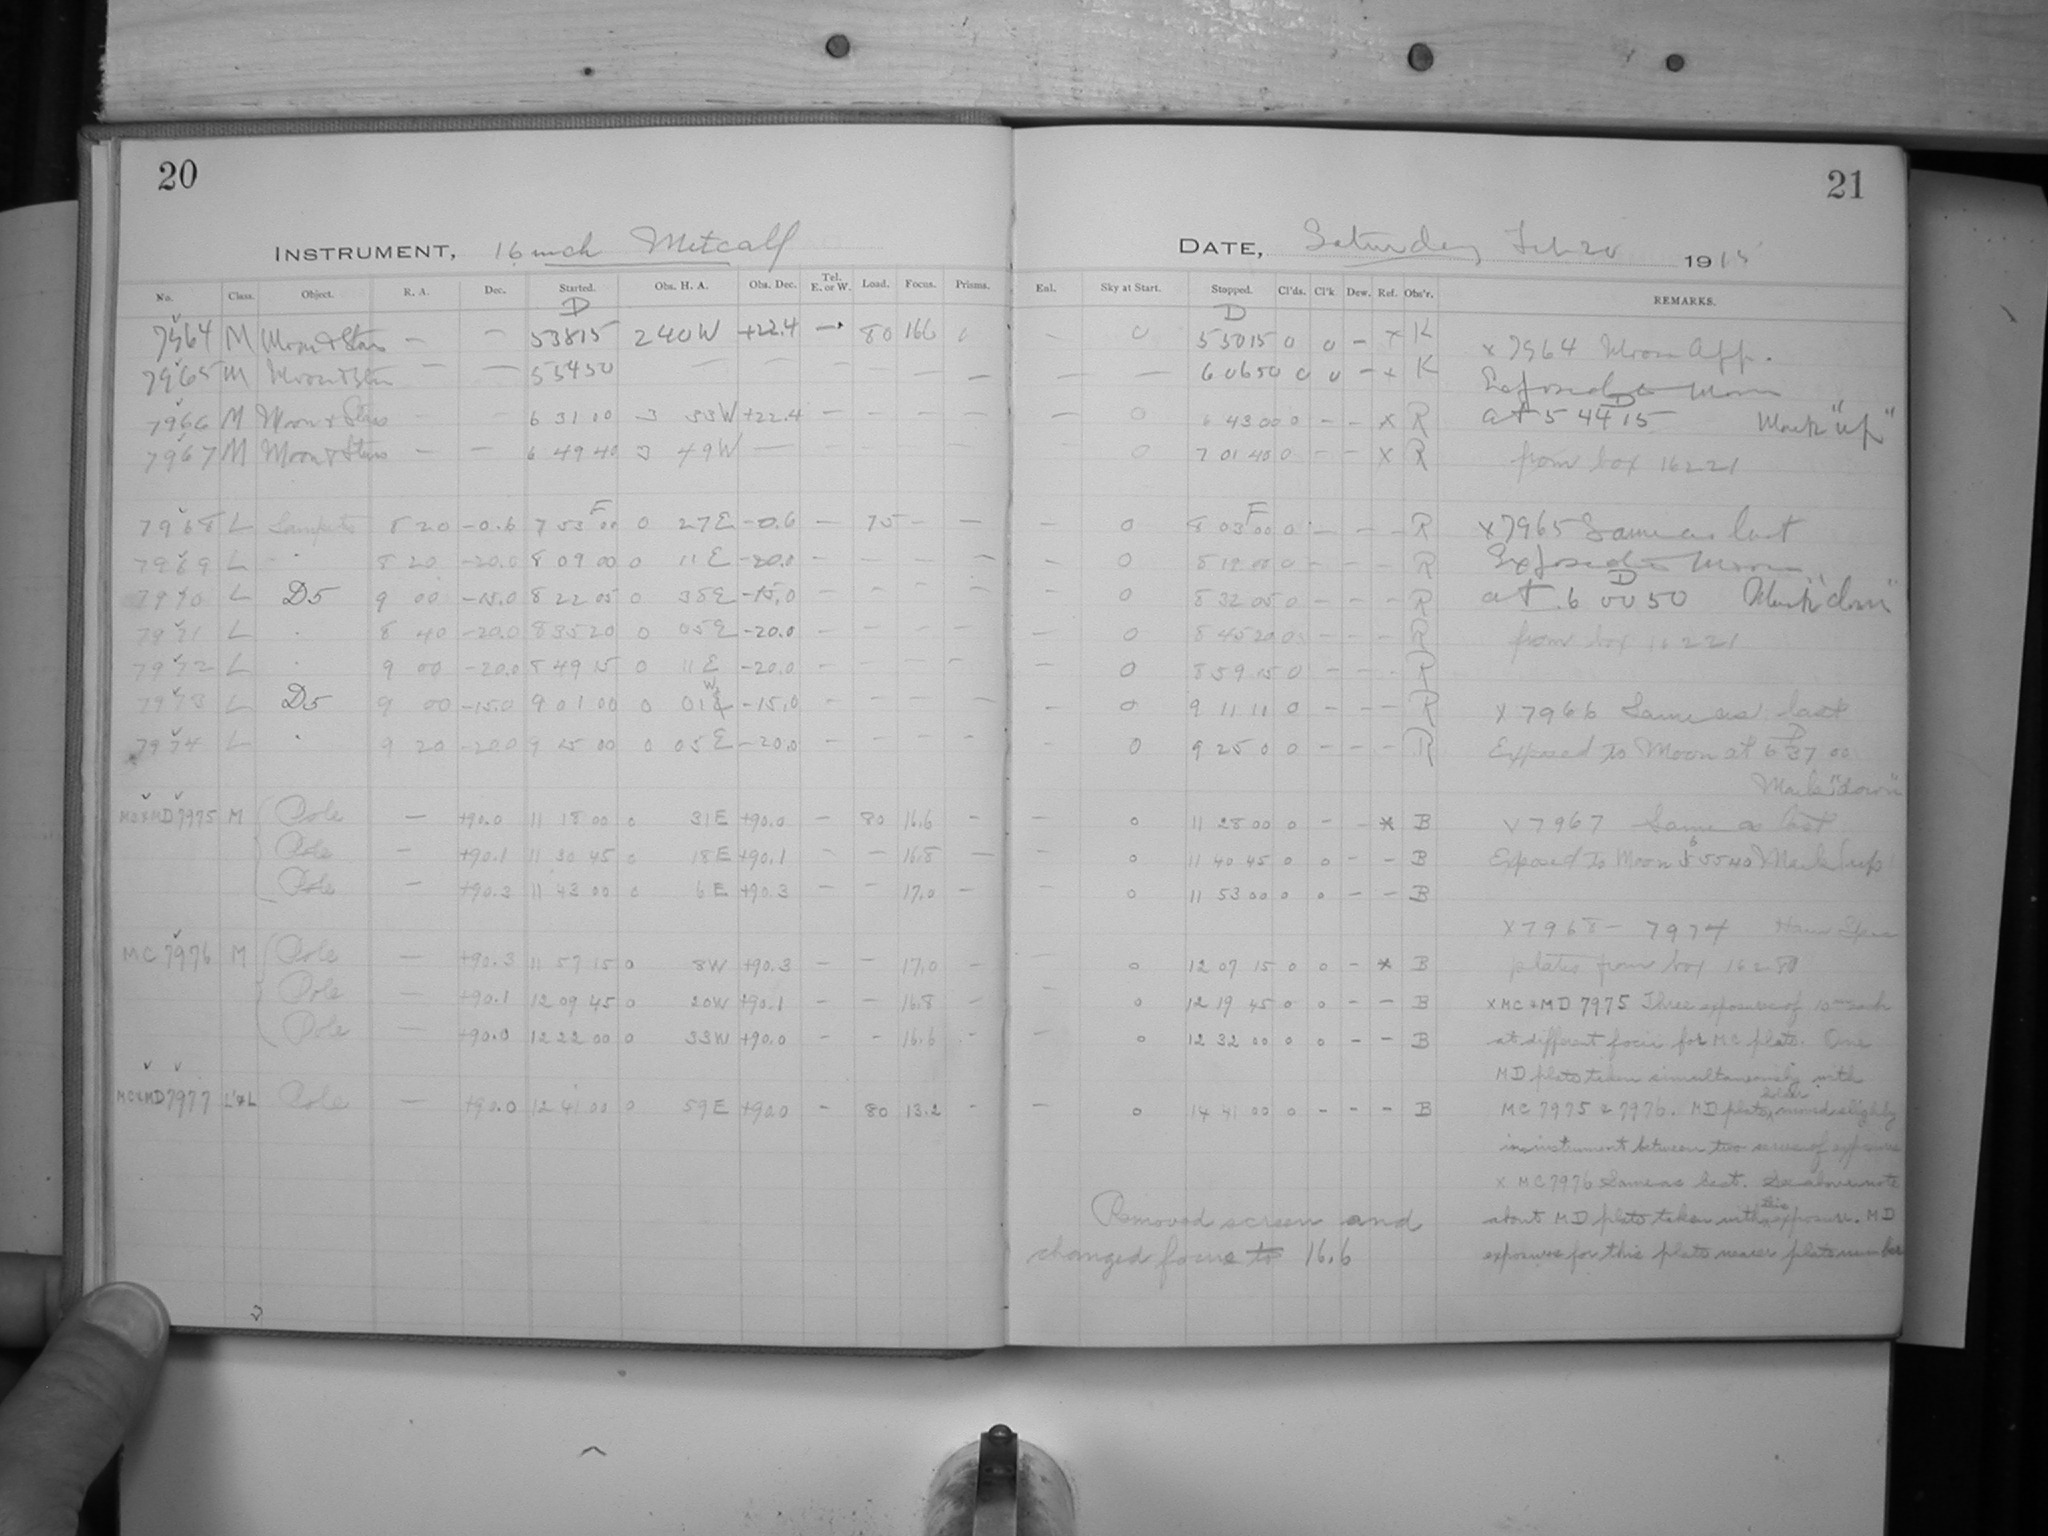 20
INSTRUMENT, 16 inch Metcalf
No. Class. Object. R. A. Dec. Started. Obs. H. A. Obs. Dec. Tel. E. or W. Load. Focus. Prisms.
D
7964 M Moon & Stars — — 53815 2 40 W +22.4 — 80 166
7965 M Moon & Stars — — 55450 — — —
7966 M Moon & Stars — — 6 31 00 3 33 W +22.4 — — — —
7967 M Moon & Stars — — 6 49 40 3 49 W — — — — —
F
7968 L 8 20 -0.6 7 53 00 0 27 E -0.6 — 75 — —
7969 L 8 20 -20.0 8 09 00 0 11 E -20.0 — — — —
7970 L D5 9 00 -15.0 8 22 05 0 38 E -15.0 — — — —
7971 L 8 40 -20.0 8 35 20 0 05 E -20.0 — — — —
7972 L 9 00 -20.0 8 49 15 0 11 E -20.0 — — — —
7973 L D5 9 00 -15.0 9 01 00 0 01 W -15.0 — — — —
7974 L 9 20 -20.0 9 15 00 0 05 E -20.0 — — — —
MC & MD 7975 M Pole — +90.0 11 18 00 0 31 E +90.0 — 80 16.6 —
Pole — +90.1 11 30 45 0 18 E +90.1 — — 16.8 —
Pole — +90.3 11 43 00 0 6 E +90.3 — — 17.0 —
MC 7976 M Pole — +90.3 11 57 15 0 8 W +90.3 — — 17.0 —
Pole — +90.1 12 09 45 0 20 W +90.1 — — 16.8 —
Pole — +90.0 12 22 00 0 33 W +90.0 — — 16.6 —
MC & MD 7977 L' & L Pole — +90.0 12 41 00 0 59 E +90.0 — 80 13.2 —
21
DATE, Saturday Feb 20 1915
Eal. Sky at Start. Stopped. Cl'ds. Cl'k. Dew. Ref. Obs'r. REMARKS.
D
— 0 55015 0 0 — x K
— — 60650 0 0 — x K
— 0 6 43 00 0 — — x R
0 7 01 40 0 — — x R
F
— 0 8 03 00 0 — — — R
— 0 8 19 00 0 — — — R
— 0 8 32 05 0 — — — R
— 0 8 45 20 0 — — — R
— 0 8 59 15 0 — — — R
— 0 9 11 11 0 — — — R
— 0 9 25 0 0 — — — R
— 0 11 28 00 0 — — * B
— 0 11 40 45 0 0 — — B
— 0 11 53 00 0 0 — — B
— 0 12 07 15 0 0 — * B
— 0 12 19 45 0 0 — — B
— 0 12 32 00 0 0 — — B
— 0 14 41 00 0 — — — B
x 7964 Moon App.
Exposed to Moon
D
at 5 44 15 Mark "up"
from box 16221
x 7965 Same as last
Exposed to Moon
D
at 6 00 50 Mark "down"
from box 16221
x 7966 Same as last
D
Exposed to Moon at 6 37 00
Mark "down"
x 7967 Same as last
Exposed to Moon 6 55 40 Mark "up"
x 7968 - 7974
plates from box 16280
x MC & MD 7975 Three exposures of 10m each
at different focii for MC plate. One
MD plate taken simultaneously with
MC 7975 & 7976. MD plate moved slightly
in instrument between two series of exposures
x MC 7976 Same as last. See above note
about MD plate taken with this exposure. MD
exposures for this plate nearer plate number
Removed screen and
changed focus to 16.6